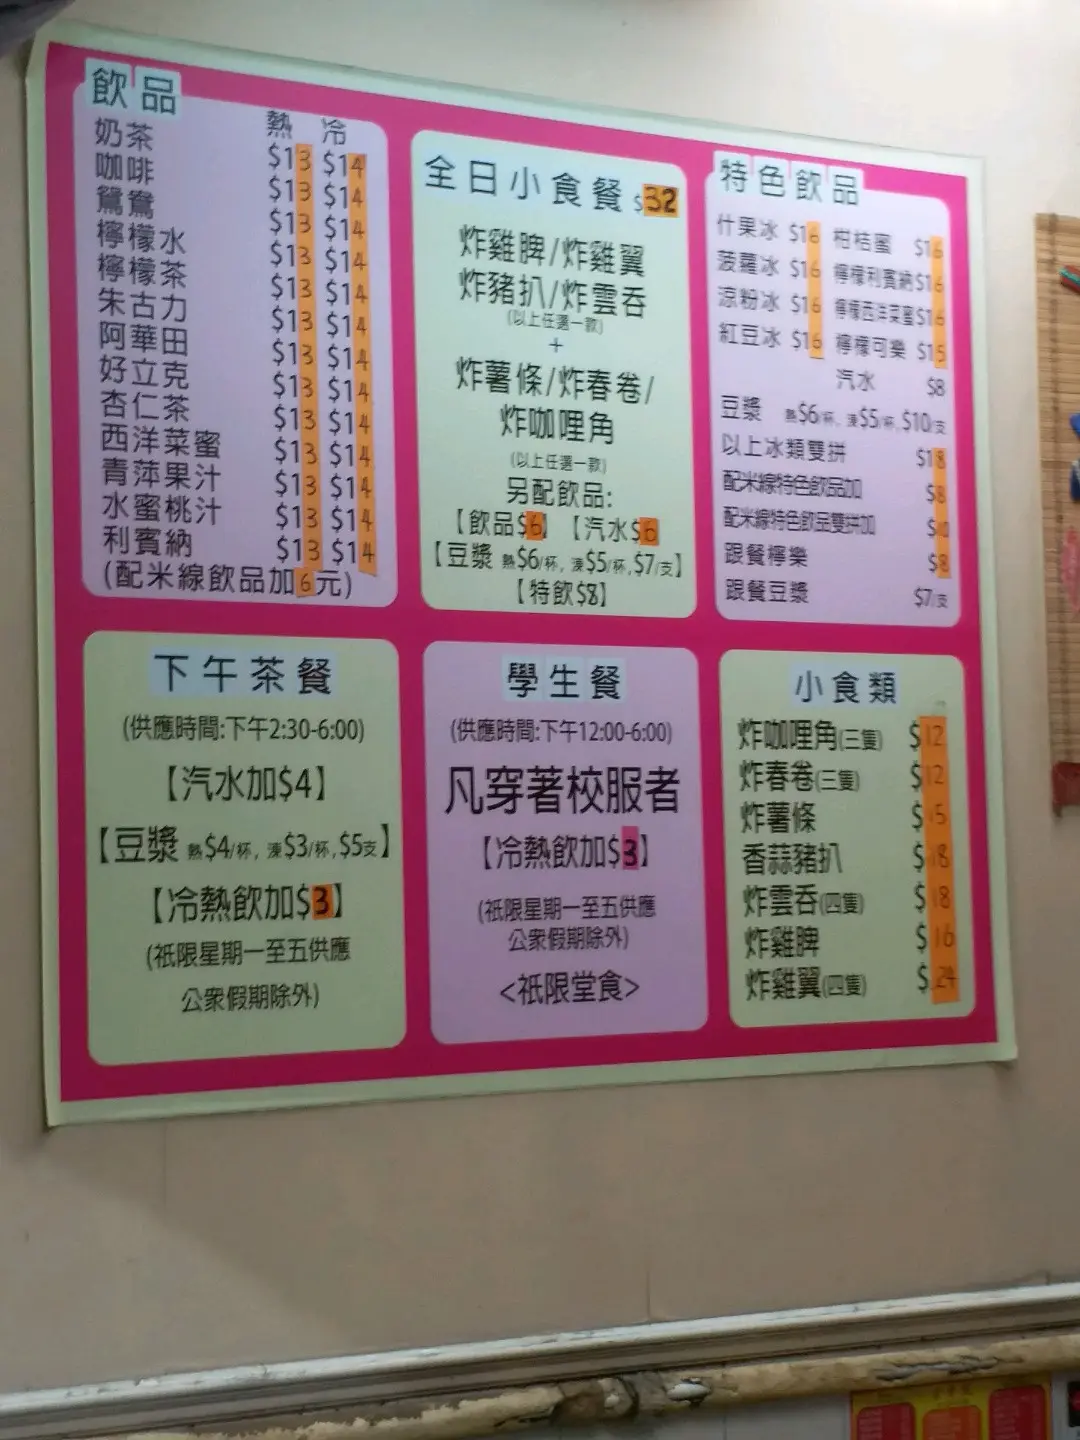 飲品
熱 冷
奶茶 $13 $14
咖啡 $13 $14
鴛鴦 $13 $14
檸檬水 $13 $14
檸檬茶 $13 $14
朱古力 $13 $14
阿華田 $13 $14
好立克 $13 $14
杏仁茶 $13 $14
西洋菜蜜 $13 $14
青萍果汁 $13 $14
水蜜桃汁 $13 $14
利賓納 $13 $14
(配米線飲品加6元)
全日小食餐 $32
炸雞脾/炸雞翼
炸豬扒/炸雲吞
(以上任選一款)
+
炸薯條/炸春卷/
炸咖哩角
(以上任選一款)
另配飲品:
【飲品$6】【汽水$6】
【豆漿 熱$6/杯, 凍$5/杯,$7/支】
【特飲$8】
特色飲品
什果冰 $16 柑桔蜜 $16
菠蘿冰 $16 檸檬利賓納 $16
涼粉冰 $16 檸檬西洋菜蜜 $16
紅豆冰 $16 檸檬可樂 $15
汽水 $8
豆漿 熱$6/杯, 凍$5/杯,$10/支
以上冰類雙拼 $18
配米線特色飲品加 $8
配米線特色飲品雙拼加 $10
跟餐檸樂 $8
跟餐豆漿 $7/支
下午茶餐
(供應時間:下午2:30-6:00)
【汽水加$4】
【豆漿 熱$4/杯, 凍$3/杯,$5支】
【冷熱飲加$3】
(祇限星期一至五供應
公眾假期除外)
學生餐
(供應時間:下午12:00-6:00)
凡穿著校服者
【冷熱飲加$3】
(祇限星期一至五供應
公眾假期除外)
<祇限堂食>
小食類
炸咖哩角(三隻) $12
炸春卷(三隻) $12
炸薯條 $15
香蒜豬扒 $18
炸雲吞(四隻) $18
炸雞脾 $16
炸雞翼(四隻) $24